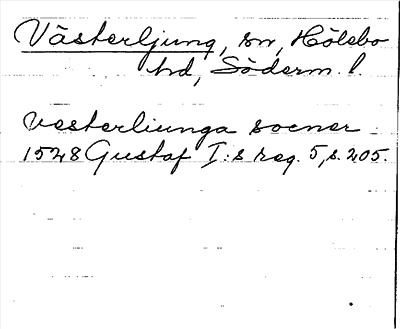 Västerljung, sn, Hölebo
hd, Söderm. l.
Vesterliunga socner
1528 Gustaf I:s reg. 5, s. 205.